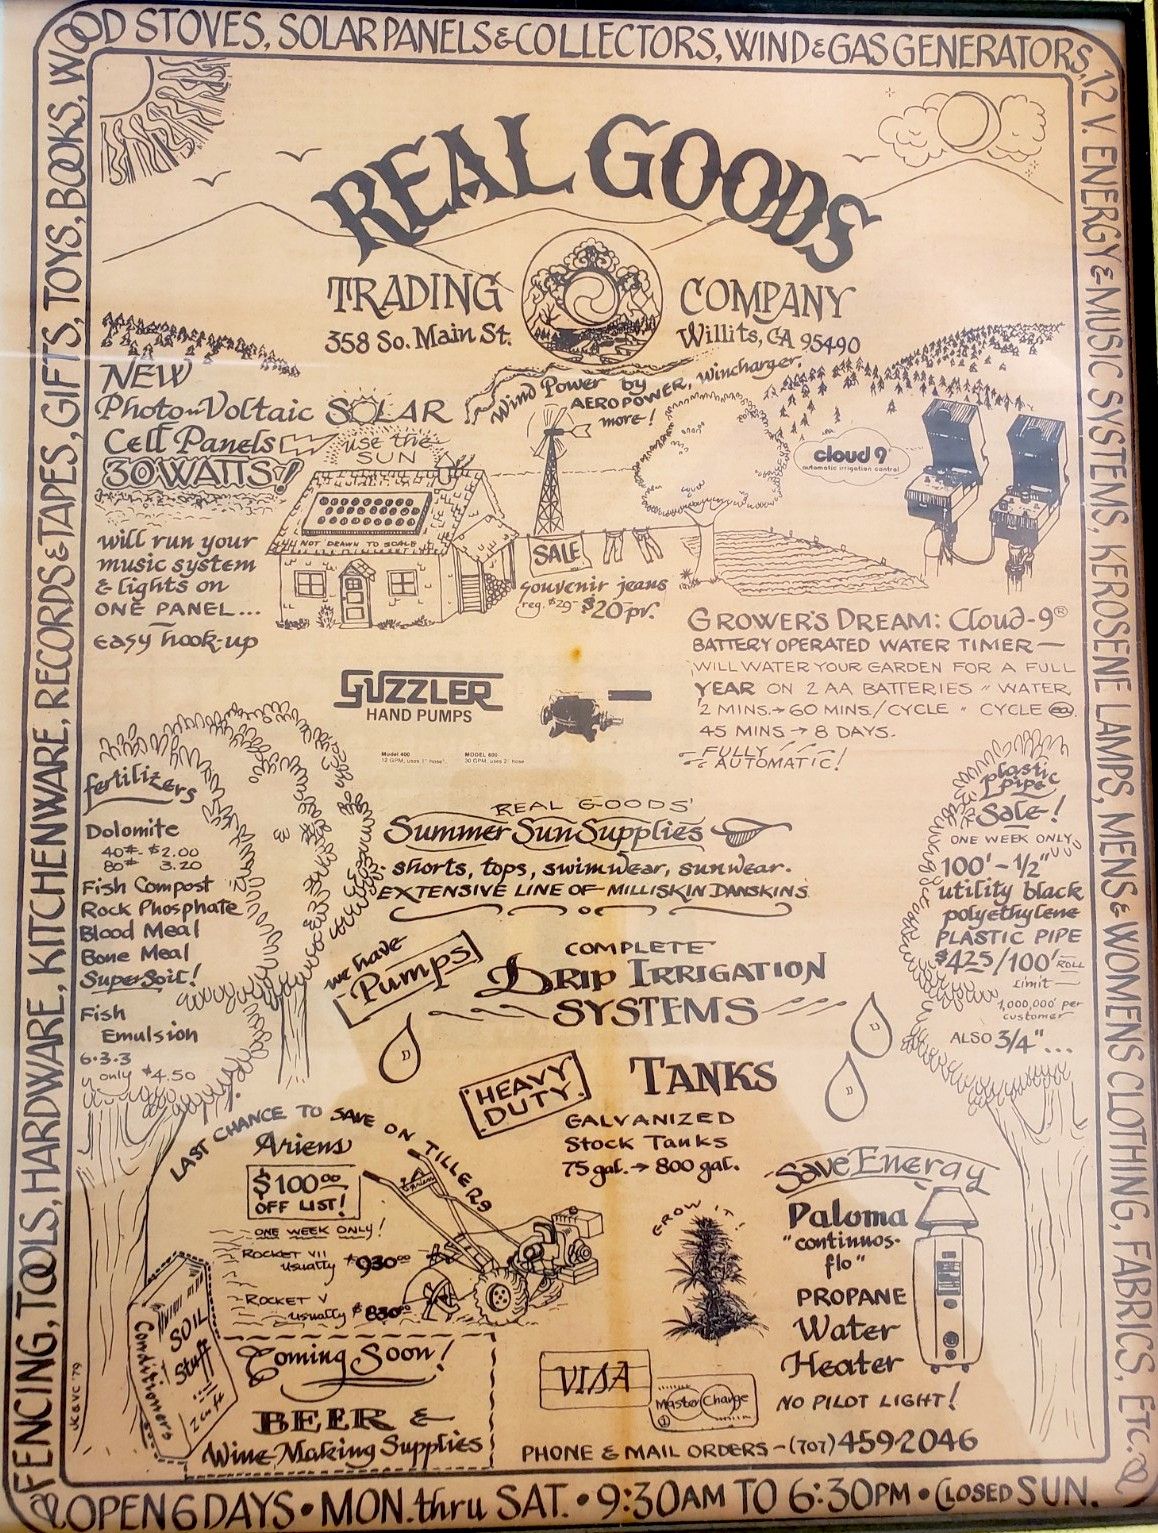 WOOD STOVES, SOLAR PANELS & COLLECTORS, WIND & GAS GENERATORS,
12 V. ENERGY & MUSIC SYSTEMS, KEROSENE LAMPS, MENS & WOMENS CLOTHING, FABRICS, ETC.
FENCING, TOOLS, HARDWARE, KITCHENWARE, RECORDS & TAPES, GIFTS, TOYS, BOOKS,
REAL GOODS
TRADING COMPANY
358 So. Main St. Willits, CA 95490
NEW
Photo~Voltaic SOLAR
Cell Panels
30 WATTS!
use the
SUN
will run your
music system
& lights on
ONE PANEL...
easy hook-up
NOT DRAWN TO SCALE
Wind Power by
AEROPOWER, Wincharger,
more!
SALE
Souvenir jeans
reg. $29- $20 pr.
cloud 9
automatic irrigation control
GROWER'S DREAM: Cloud-9®
BATTERY OPERATED WATER TIMER—
WILL WATER YOUR GARDEN FOR A FULL
YEAR ON 2 AA BATTERIES " WATER
2 MINS.→60 MINS./CYCLE " CYCLE
45 MINS → 8 DAYS.
FULLY
AUTOMATIC!
GUZZLER
HAND PUMPS
Model 400
12 GPM, uses 1" hose
MODEL 600
30 GPM, uses 2" hose
fertilizers
Dolomite
40# - $2.00
80# 3.20
Fish Compost
Rock Phosphate
Blood Meal
Bone Meal
SuperSoil!
Fish
Emulsion
6·3·3
only $4.50
REAL GOODS'
Summer Sun Supplies
shorts, tops, swimwear, sunwear.
EXTENSIVE LINE OF MILLISKIN DANSKINS
plastic
pipe
Sale!
ONE WEEK ONLY
100'-1/2"
utility black
polyethylene
PLASTIC PIPE
$4.25/100' ROLL
Limit—
1,000,000' per
customer
ALSO 3/4"...
we have
Pumps
COMPLETE
DRIP IRRIGATION
SYSTEMS
HEAVY
DUTY
TANKS
GALVANIZED
Stock Tanks
75 gal. → 800 gal.
LAST CHANCE TO SAVE ON TILLERS
Ariens
$100.00
OFF LIST!
ONE WEEK ONLY!
ROCKET VII
usually $930.00
ROCKET V
usually $830.00
Ariens
GROW IT!
Save Energy
Paloma
"continuos-
flo"
PROPANE
Water
Heater
NO PILOT LIGHT!
SOIL
Stuff
2 cu. ft.
Conditioners
JK & VC '79
Coming Soon!
BEER &
Wine Making Supplies
VISA
Master Charge
PHONE & MAIL ORDERS - (707) 459-2046
OPEN 6 DAYS • MON. thru SAT. • 9:30AM TO 6:30PM • CLOSED SUN.